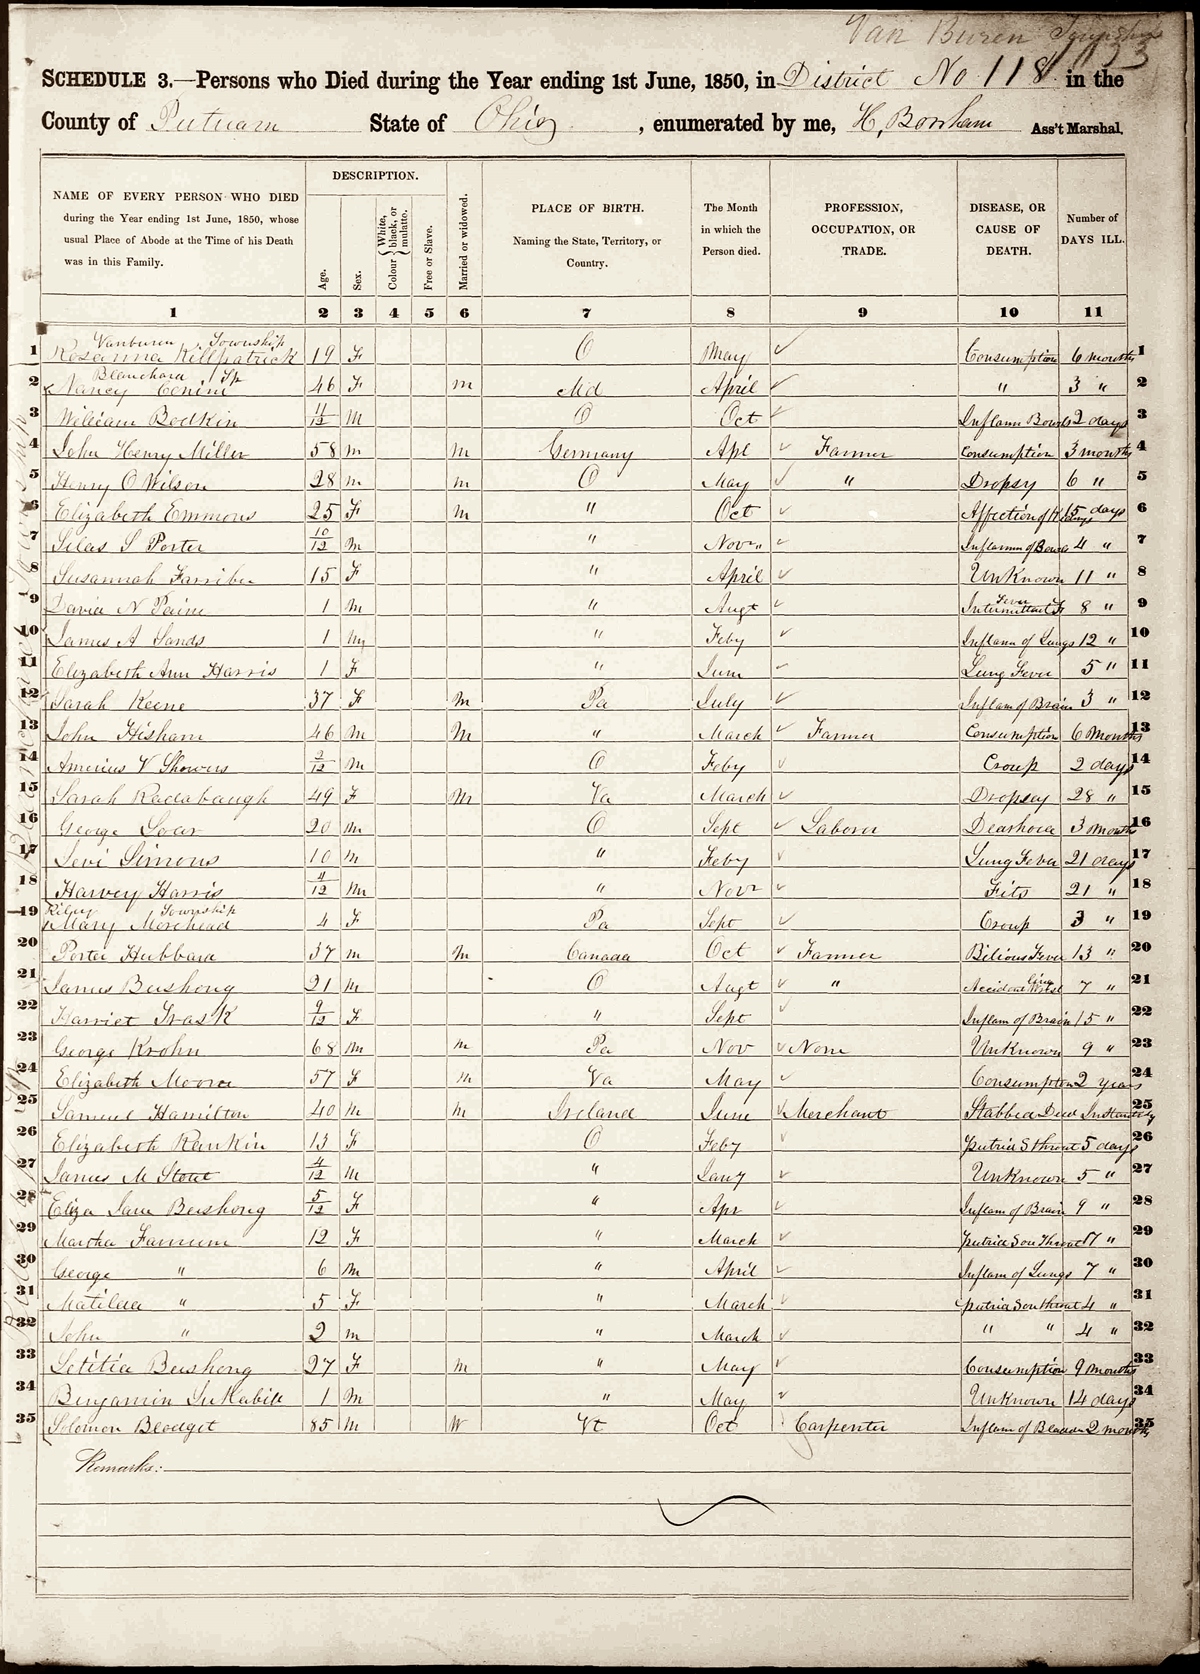 Van Buren Township
133
SCHEDULE 3.—Persons who Died during the Year ending 1st June, 1850, in District No 118 in the
County of Putnam State of Ohio, enumerated by me, H, Bonham Ass't Marshal.
NAME OF EVERY PERSON WHO DIED during the Year ending 1st June, 1850, whose usual Place of Abode at the Time of his Death was in this Family.
DESCRIPTION.
Age.
Sex.
Colour { White, black, or mulatto.
Free or Slave.
Married or widowed.
PLACE OF BIRTH. Naming the State, Territory, or Country.
The Month in which the Person died.
PROFESSION, OCCUPATION, OR TRADE.
DISEASE, OR CAUSE OF DEATH.
Number of DAYS ILL.
1 2 3 4 5 6 7 8 9 10 11
Vanburen Township
1 Rosanna Killpatrick 19 F O May Consumption 6 months 1
Blanchard Tp
2 Nancy 46 F m Md April " 3 " 2
3 William Bodkin 11/12 M O Oct Inflamn Bowls 2 days 3
4 John Henry Miller 58 m m Germany Apl Farmer Consumption 3 months 4
5 Henry O Wilson 28 m m O May " Dropsy 6 " 5
6 Elizabeth Emmons 25 F m " Oct Affection of Kidneys 15 days 6
7 Silas S Porter 10/12 m " Novr " Inflamn of Bowls 4 " 7
8 Susannah 15 F " April Unknown 11 " 8
9 David N Paine 1 m " Augt Intermittent Fever 8 " 9
10 James A Sands 1 m " Feby Inflam of Lungs 12 " 10
11 Elizabeth Ann Harris 1 F " June Lung Fever 5 " 11
12 Sarah Keene 37 F m Pa July Inflam of Brain 3 " 12
13 John Hisham 46 m m " March Farmer Consumption 6 Months 13
14 V Showers 2/12 m O Feby Croup 2 days 14
15 Sarah Radabaugh 49 F m Va March Dropsey 28 " 15
16 George 20 m O Sept Laborer Dearhoea 3 months 16
17 Levi Simons 10 m " Feby Lung Fever 21 days 17
18 Harvey Harris 4/12 m " Novr Fits 21 " 18
Riley Township
19 Mary Morehead 4 F Pa Sept Croup 3 " 19
20 Porter Hubbard 37 m m Canada Oct Farmer Bilious Fever 13 " 20
21 James Beishong 21 m O Augt " Accident 7 " 21
22 Harriet Trask 9/12 F " Sept Inflam of Brain 15 " 22
23 George Krohn 68 m m Pa Nov None Unknown 9 " 23
24 Elizabeth Moore 57 F m Va May Consumption 2 years 24
25 Samuel Hamilton 40 m m Ireland June Merchant Stabbed Died Instantly 25
26 Elizabeth Rankin 13 F O Feby putrid S throat 5 days 26
27 James M Stout 4/12 m " Jany Unknown 5 " 27
28 Eliza Jane Beishong 5/12 F " Apr Inflam of Brain 9 " 28
29 Martha Farnum 12 F " March putrid Sou Throat 17 " 29
30 George " 6 m " April Inflam of Lungs 7 " 30
31 Matilda " 5 F " March putrid Sou throat 4 " 31
32 John " 2 m " March " " 4 " 32
33 Letitia Beishong 27 F m " May Consumption 9 months 33
34 Benjamin 1 m " May Unknown 14 days 34
35 Solomon Blodget 85 m W Vt Oct Carpenter Inflam of Bladder 2 months 35
Remarks: